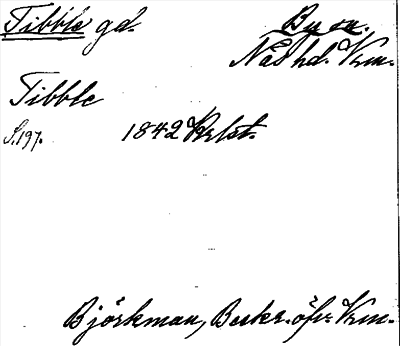 Tibble gd. By sn.
Näs hd. Vrm.
Tibble
S. 197. 1842 Krlst.
Björkman, Beskr. öfr. Vrm.